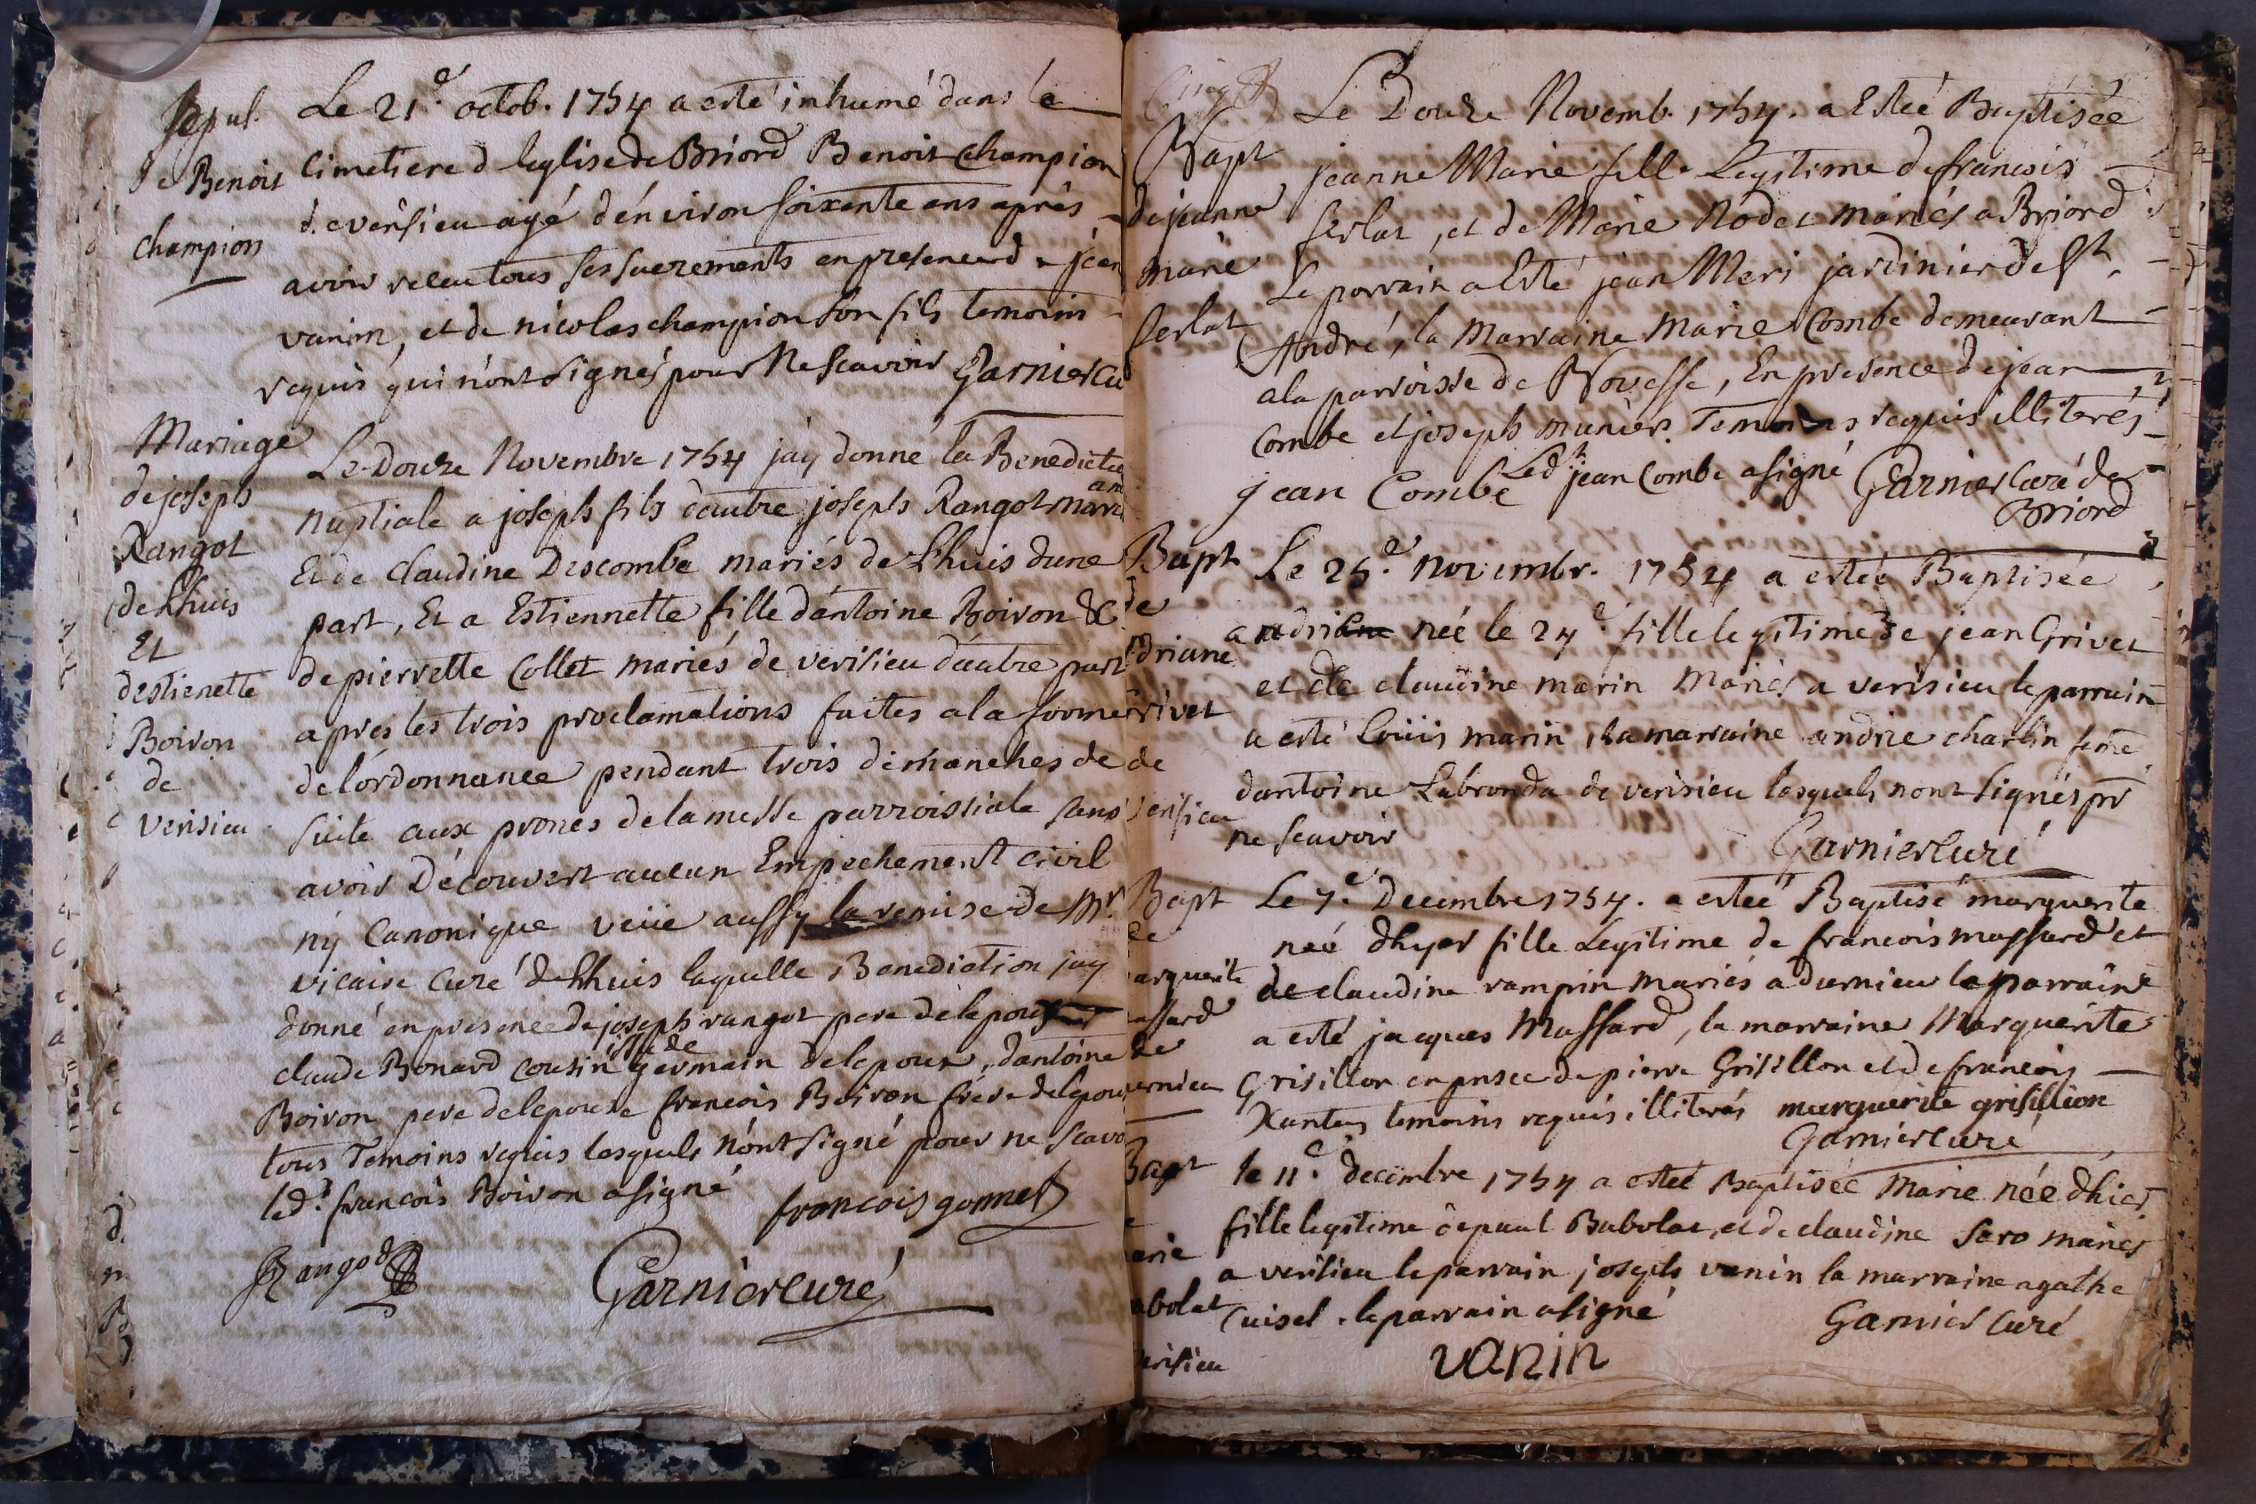 Sepul.
de Benoit
champion
Le 21e. octob. 1754 a esté inhumé dans le
cimetiere d leglise de Briord Benoit champion
de vérsieu agé dénviron soixente ans aprés
avoir receu tous ses sacrements en presence d jéan
vanin, et de nicolas champion son fils temoins
requis qui nónt signés pour ne scavoir Garnier cu
Mariage
de joseph
Rangot
de Lhuis
Et
destienette
Boivon
de
verisieu
Le Douze Novembre 1754 jay donné la Benedictio
nuptiale a joseph fils dautre joseph Rangot
Et de claudine Descombe mariés de Lhuis dune
part, Et a Estiennette fille dántoine Boivon &
de pierrette Collet mariés de verisieu dáutre part
apres les trois proclamations faites a la forme
de lórdonnance pendant trois dimanches de
suite aux prones de la messe parroissiale sans
avoir Découvert aucun Empechement civil
ny Canonique veüe aussy la remise de Mr.
vicaire curé de Lhuis laquelle Benediction jay
donné en presence de joseph rangot pere de lepoux
claude Bonard cousin issu de germain de lepoux, dantoine
Boivon pere de lepouse francois Boivon frére de lepou
tous Temoins requis lesquels nónt signé pour ne scavo
led. francois Boivon a signé
francois gonnet
Rangod
Garnier curé
Bapt
de jeanne
marie
serlat
Le Douze Novemb. 1754. a Estéé Baptisée
jeanne Marie fille Legitime de francois
serlat, et de Marie Rodet mariés a Briord
Le parrain a Esté jean Meri jardinier de St.
André, la Marraine Marie Combe demeurant
a la parroisse de Rovesse, En presence de jean
Combe et joseph munier. Temoins requis illiterés
Led. jean Combe a signé Garnier curé de
Briord
jean Combe
Bapt
de
driane
rivet
de
erisieu
Le 25e. Novembr. 1754 a estéé Baptisée
andriane née le 24e. fille legitime de jean Grivet
et de claudine marin Mariés a verisieu le parrain
a esté Loüis marin, la marraine andrie charlin feme
dantoine Labronda de verisieu lesquels nont signés pr
ne scavoir
Garnier curé
Bapt
de
arguerite
assard
de
ernieu
Le 7e. Decembre 1754. a estéé Baptisé marguerite
neé dhyer fille Legitime de francois massard et
de claudine ramprin mariés a durnieu le parrain
a esté jacques Massard, la marraine Marguerite
Grisillon en pnsce de pierre Grisillon et de francois
Xantes temoins requis illiterés marguerite grisillion
Garnier curé
Bapt
e
arie
abolat
erisieu
le 11e. decembre 1754 a estéé Baptisée Marie née dhier
fille legitime de paul Babolat, et de claudine Sero mariés
a verisieu le parrain joseph vanin la marraine agathe
Cuisel. le parrain a signé
Garnier curé
vanin